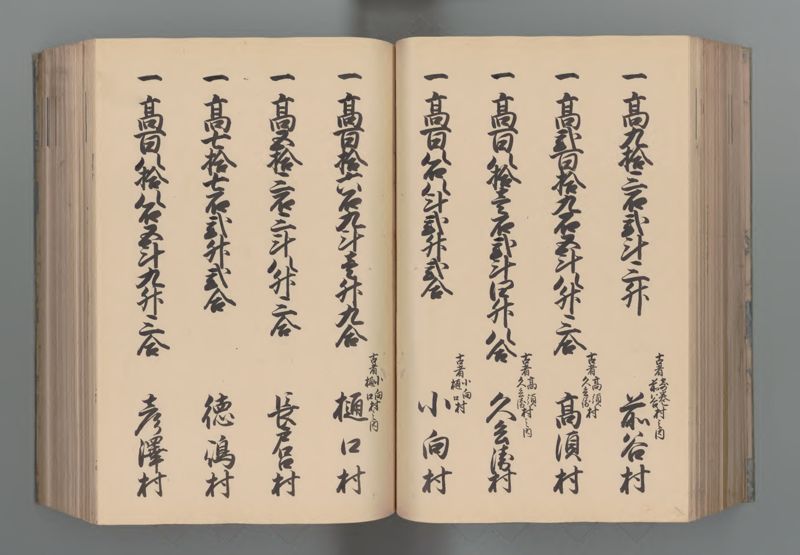 一 髙九拾三石弐斗三升 古者 村之内 前谷 前谷村
一 髙弐百拾九石五斗八升三合 古者髙須村 髙須村
一 髙百八拾壱石弐斗四升八合 古者髙須村之内 村
一 髙百八石八斗弐升弐合 古者小向村 樋口 小向村
一 髙百拾六石九斗壱升九合 古者小向村之内 樋口 樋口村
一 髙五拾三石三斗八升三合 長戸呂村
一 髙七拾七石弐升弐合 徳 村
一 髙百八拾八石五斗九升三合 彦澤村